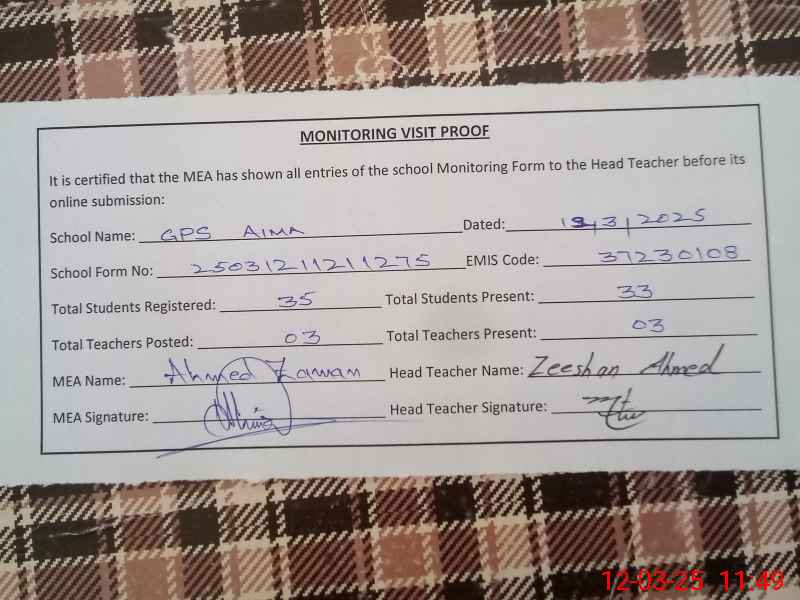 MONITORING VISIT PROOF
It is certified that the MEA has shown all entries of the school Monitoring Form to the Head Teacher before its
online submission:
School Name: GPS AIMA Dated: 12/3/2025
School Form No: 25031211211275 EMIS Code: 37230108
Total Students Registered: 35 Total Students Present: 33
Total Teachers Posted: 03 Total Teachers Present: 03
MEA Name: Ahmed Zaman Head Teacher Name: Zeeshan Ahmed
MEA Signature: Head Teacher Signature:
12-03-25 11:49